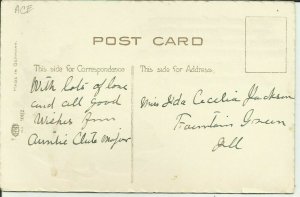 ACE
POST CARD
This side for Correspondence
This side for Address.
With lots of love
and all Good
Wishes from
Auntie Clute Major
Miss Ida Cecelia Jackson
Fountain Green
Ill